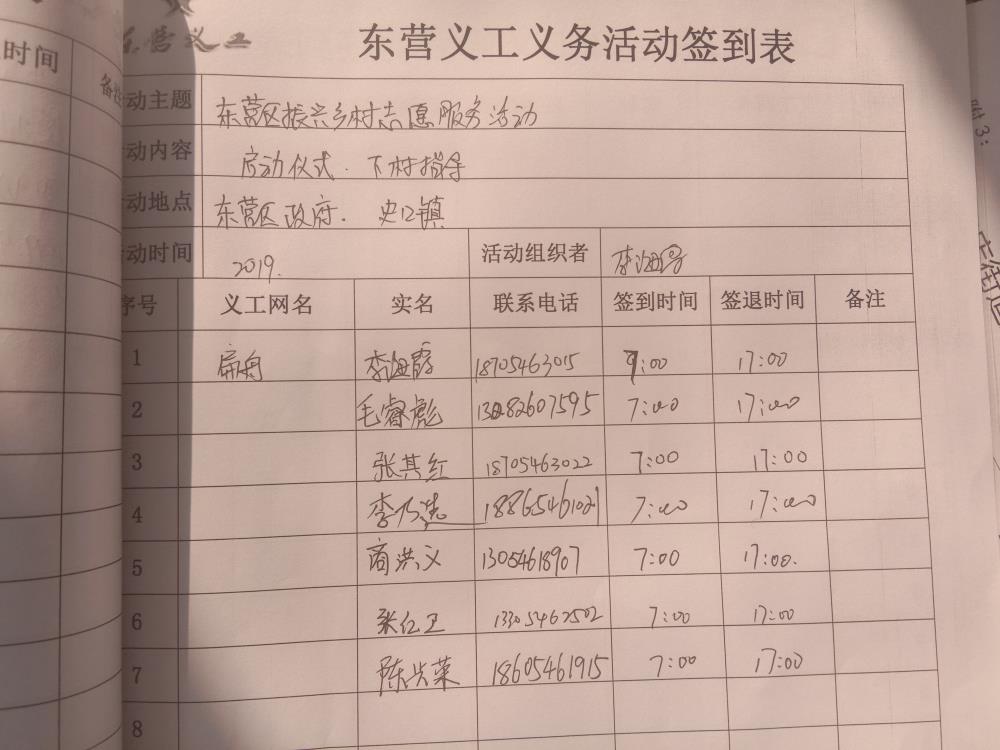 时间
备注
东营义工
东营义工义务活动签到表
动主题 东营区振兴乡村志愿服务活动
动内容 启动仪式. 下村指导
动地点 东营区政府. 史口镇
动时间 2019. 活动组织者 李海霞
序号 义工网名 实名 联系电话 签到时间 签退时间 备注
1 扁舟 李海霞 18705463015 7:00 17:00
2 毛睿彪 13082607595 7:00 17:00
3 张其红 18705463022 7:00 17:00
4 李乃 18865461021 7:00 17:00
5 商洪义 13054618907 7:00 17:00.
6 张红卫 13305462502 7:00 17:00
7 陈兴荣 18605461915 7:00 17:00
8
附3: